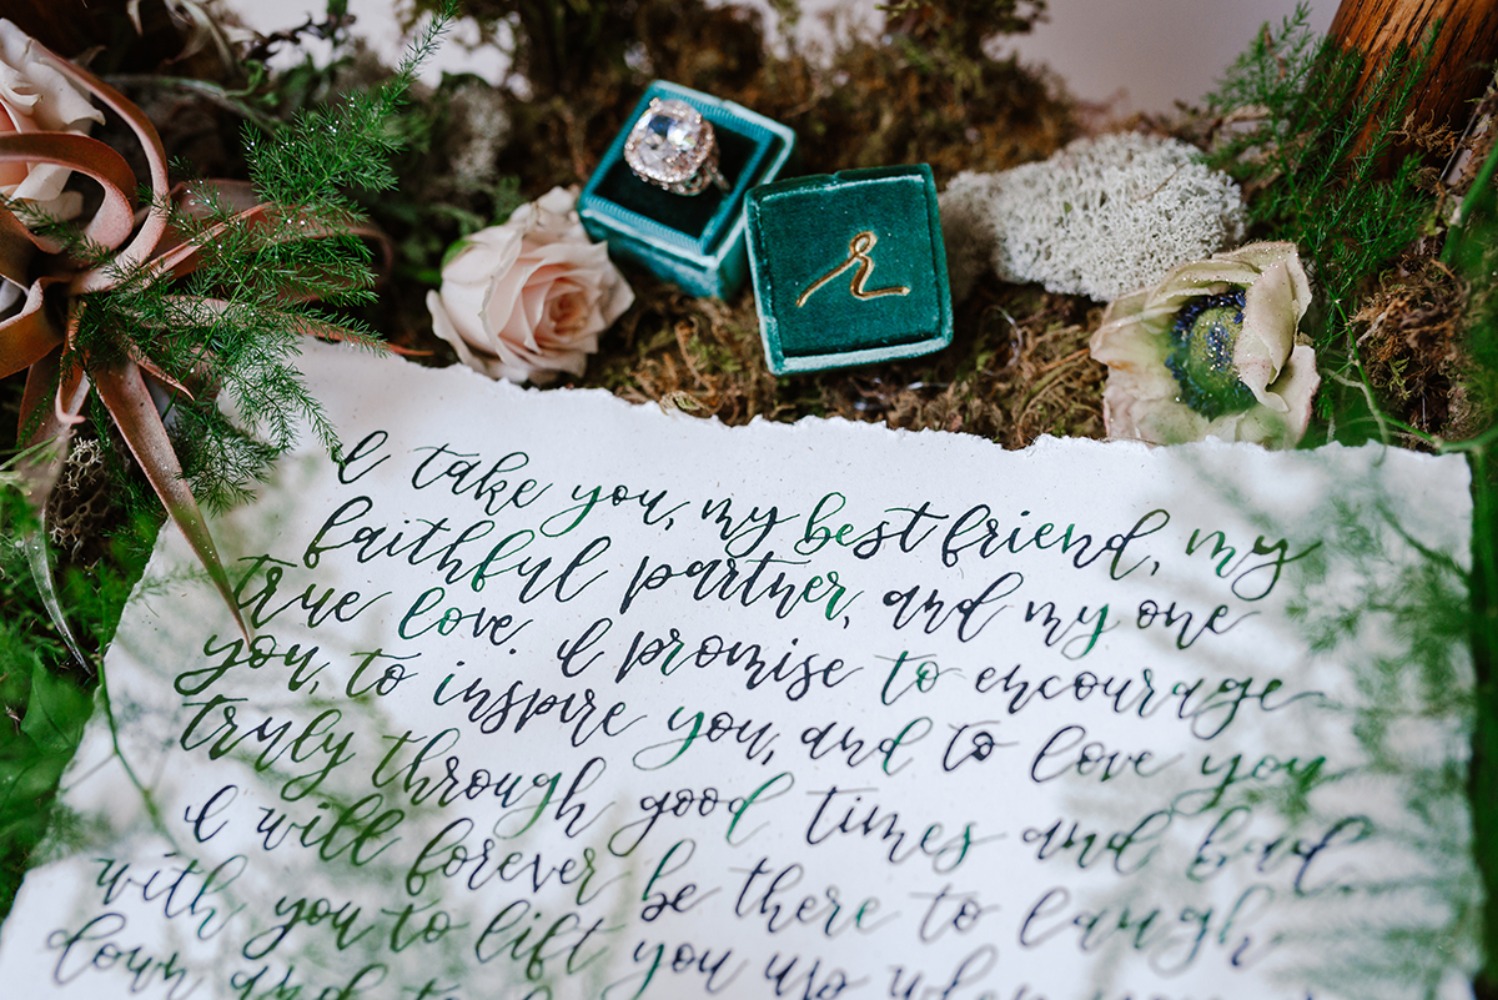 r
I take you, my best friend, my
faithful partner, and my one
true love. I promise to encourage
you, to inspire you, and to love you
truly through good times and bad
I will forever be there to laugh
with you to lift you up when
down and